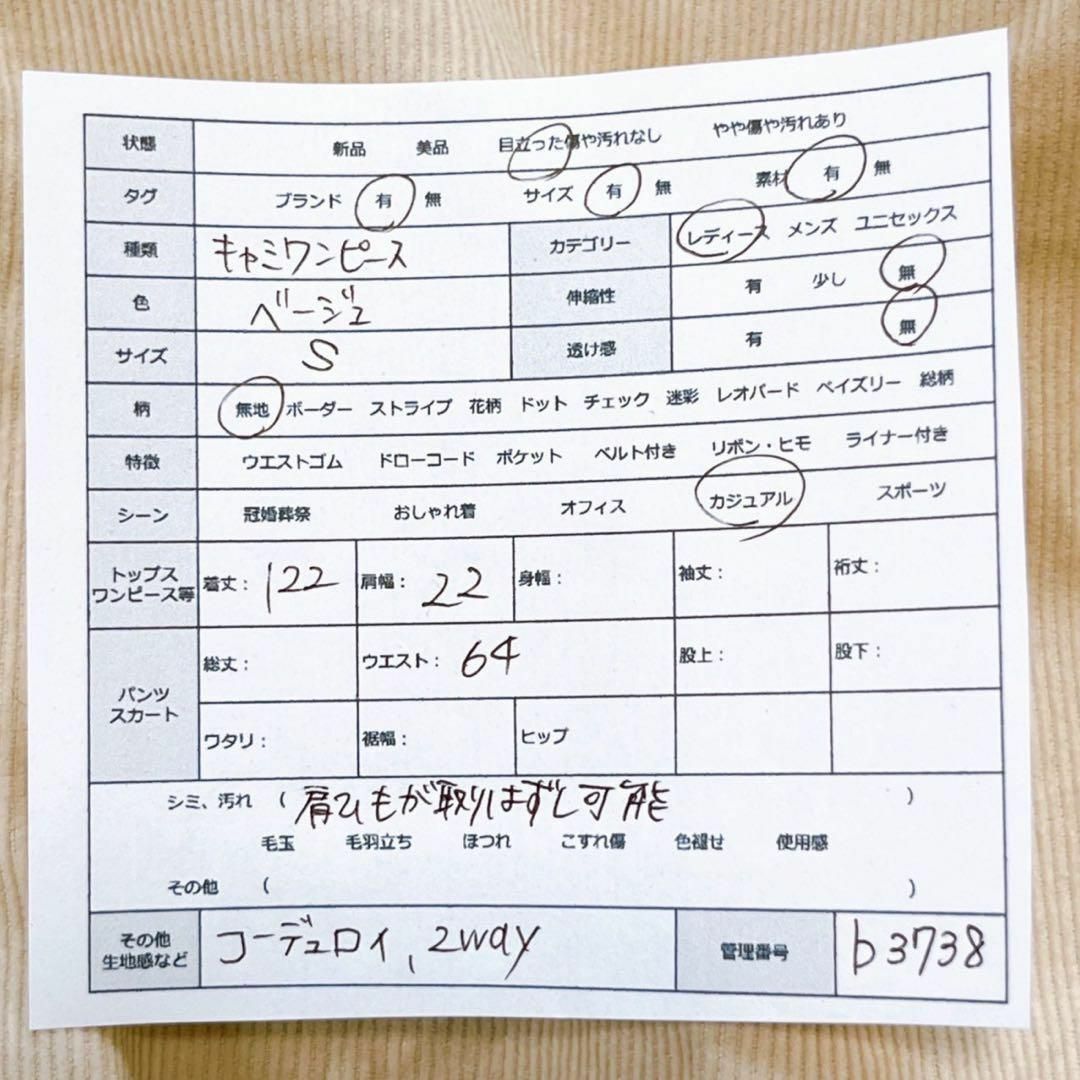 状態 新品 美品 目立った傷や汚れなし やや傷や汚れあり
タグ ブランド 有 無 サイズ 有 無 素材 有 無
種類 キャミワンピース カテゴリー レディース メンズ ユニセックス
色 ベージュ 伸縮性 有 少し 無
サイズ S 透け感 有 無
柄 無地 ボーダー ストライプ 花柄 ドット チェック 迷彩 レオパード ペイズリー 総柄
特徴 ウエストゴム ドローコード ポケット ベルト付き リボン・ヒモ ライナー付き
シーン 冠婚葬祭 おしゃれ着 オフィス カジュアル スポーツ
トップス
ワンピース等 着丈： 122 肩幅： 22 身幅： 袖丈： 裄丈：
パンツ
スカート 総丈： ウエスト： 64 股上： 股下：
ワタリ： 裾幅： ヒップ
シミ、汚れ （ 肩ひもが取りはずし可能 ）
毛玉 毛羽立ち ほつれ こすれ傷 色褪せ 使用感
その他 （ ）
その他
生地感など コーデュロイ, 2way 管理番号 b3738